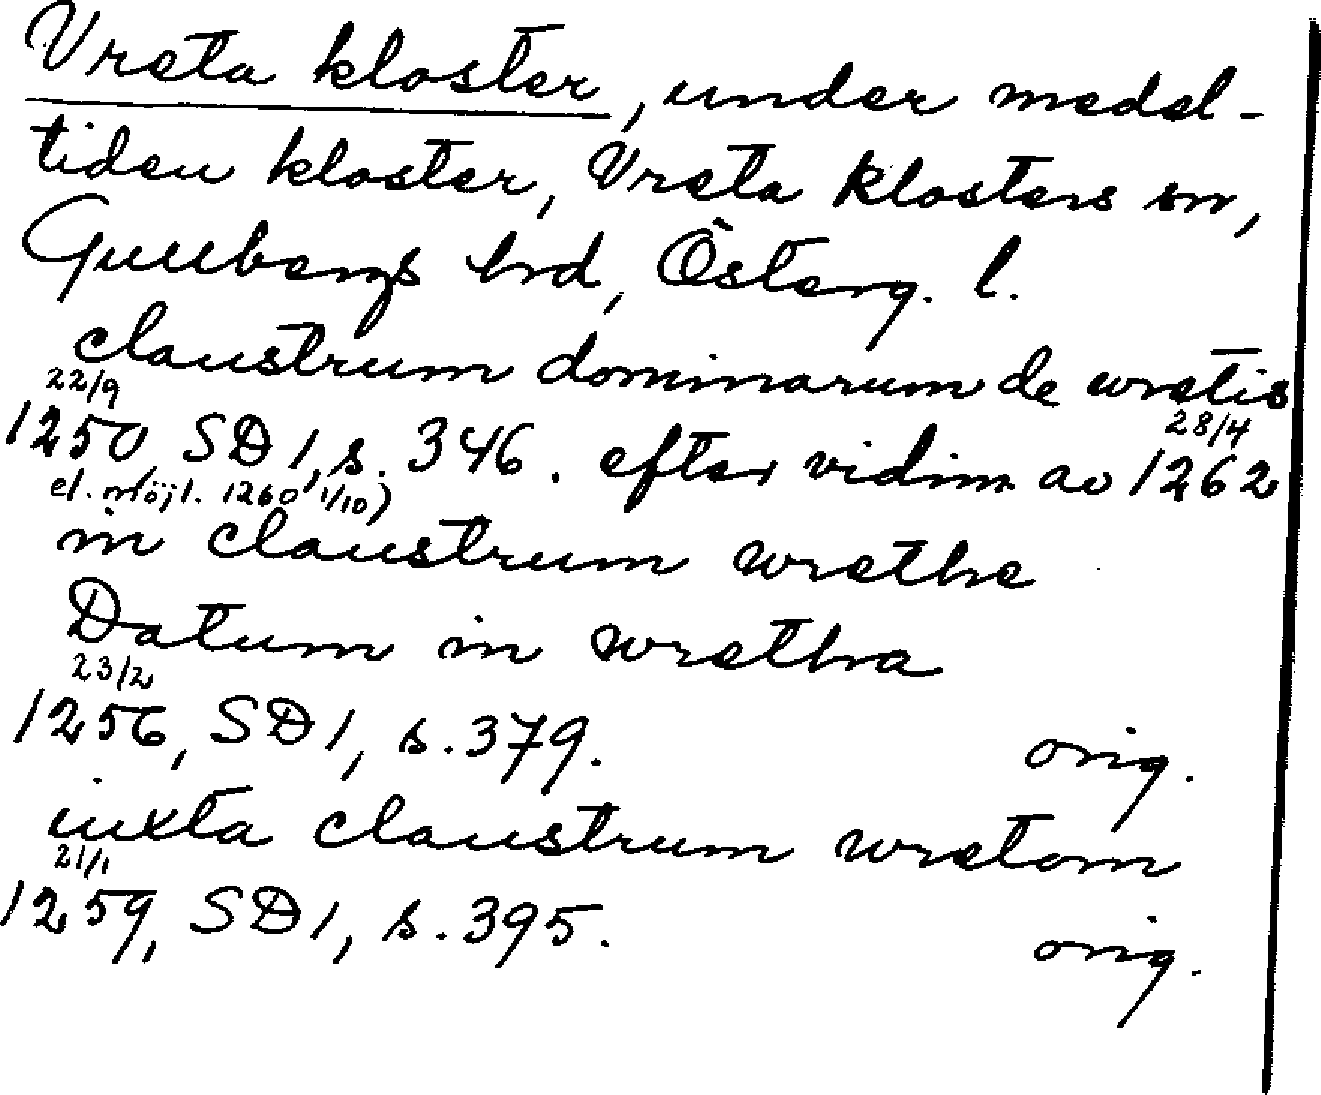 Vreta kloster, under medel-
tiden kloster, Vreta Klosters sn,
Gullbergs hrd, Österg. l.
claustrum dominarum de wretis
22/9 28/4
1250 SD 1, s. 346. efter vidim av 1262
el. möjl. 1260 1/10)
in claustrum wrethe
Datum in wretha
23/2
1256, SD 1, s. 379. orig.
iuxta claustrum wretom
21/1
1259, SD 1, s. 395. orig.